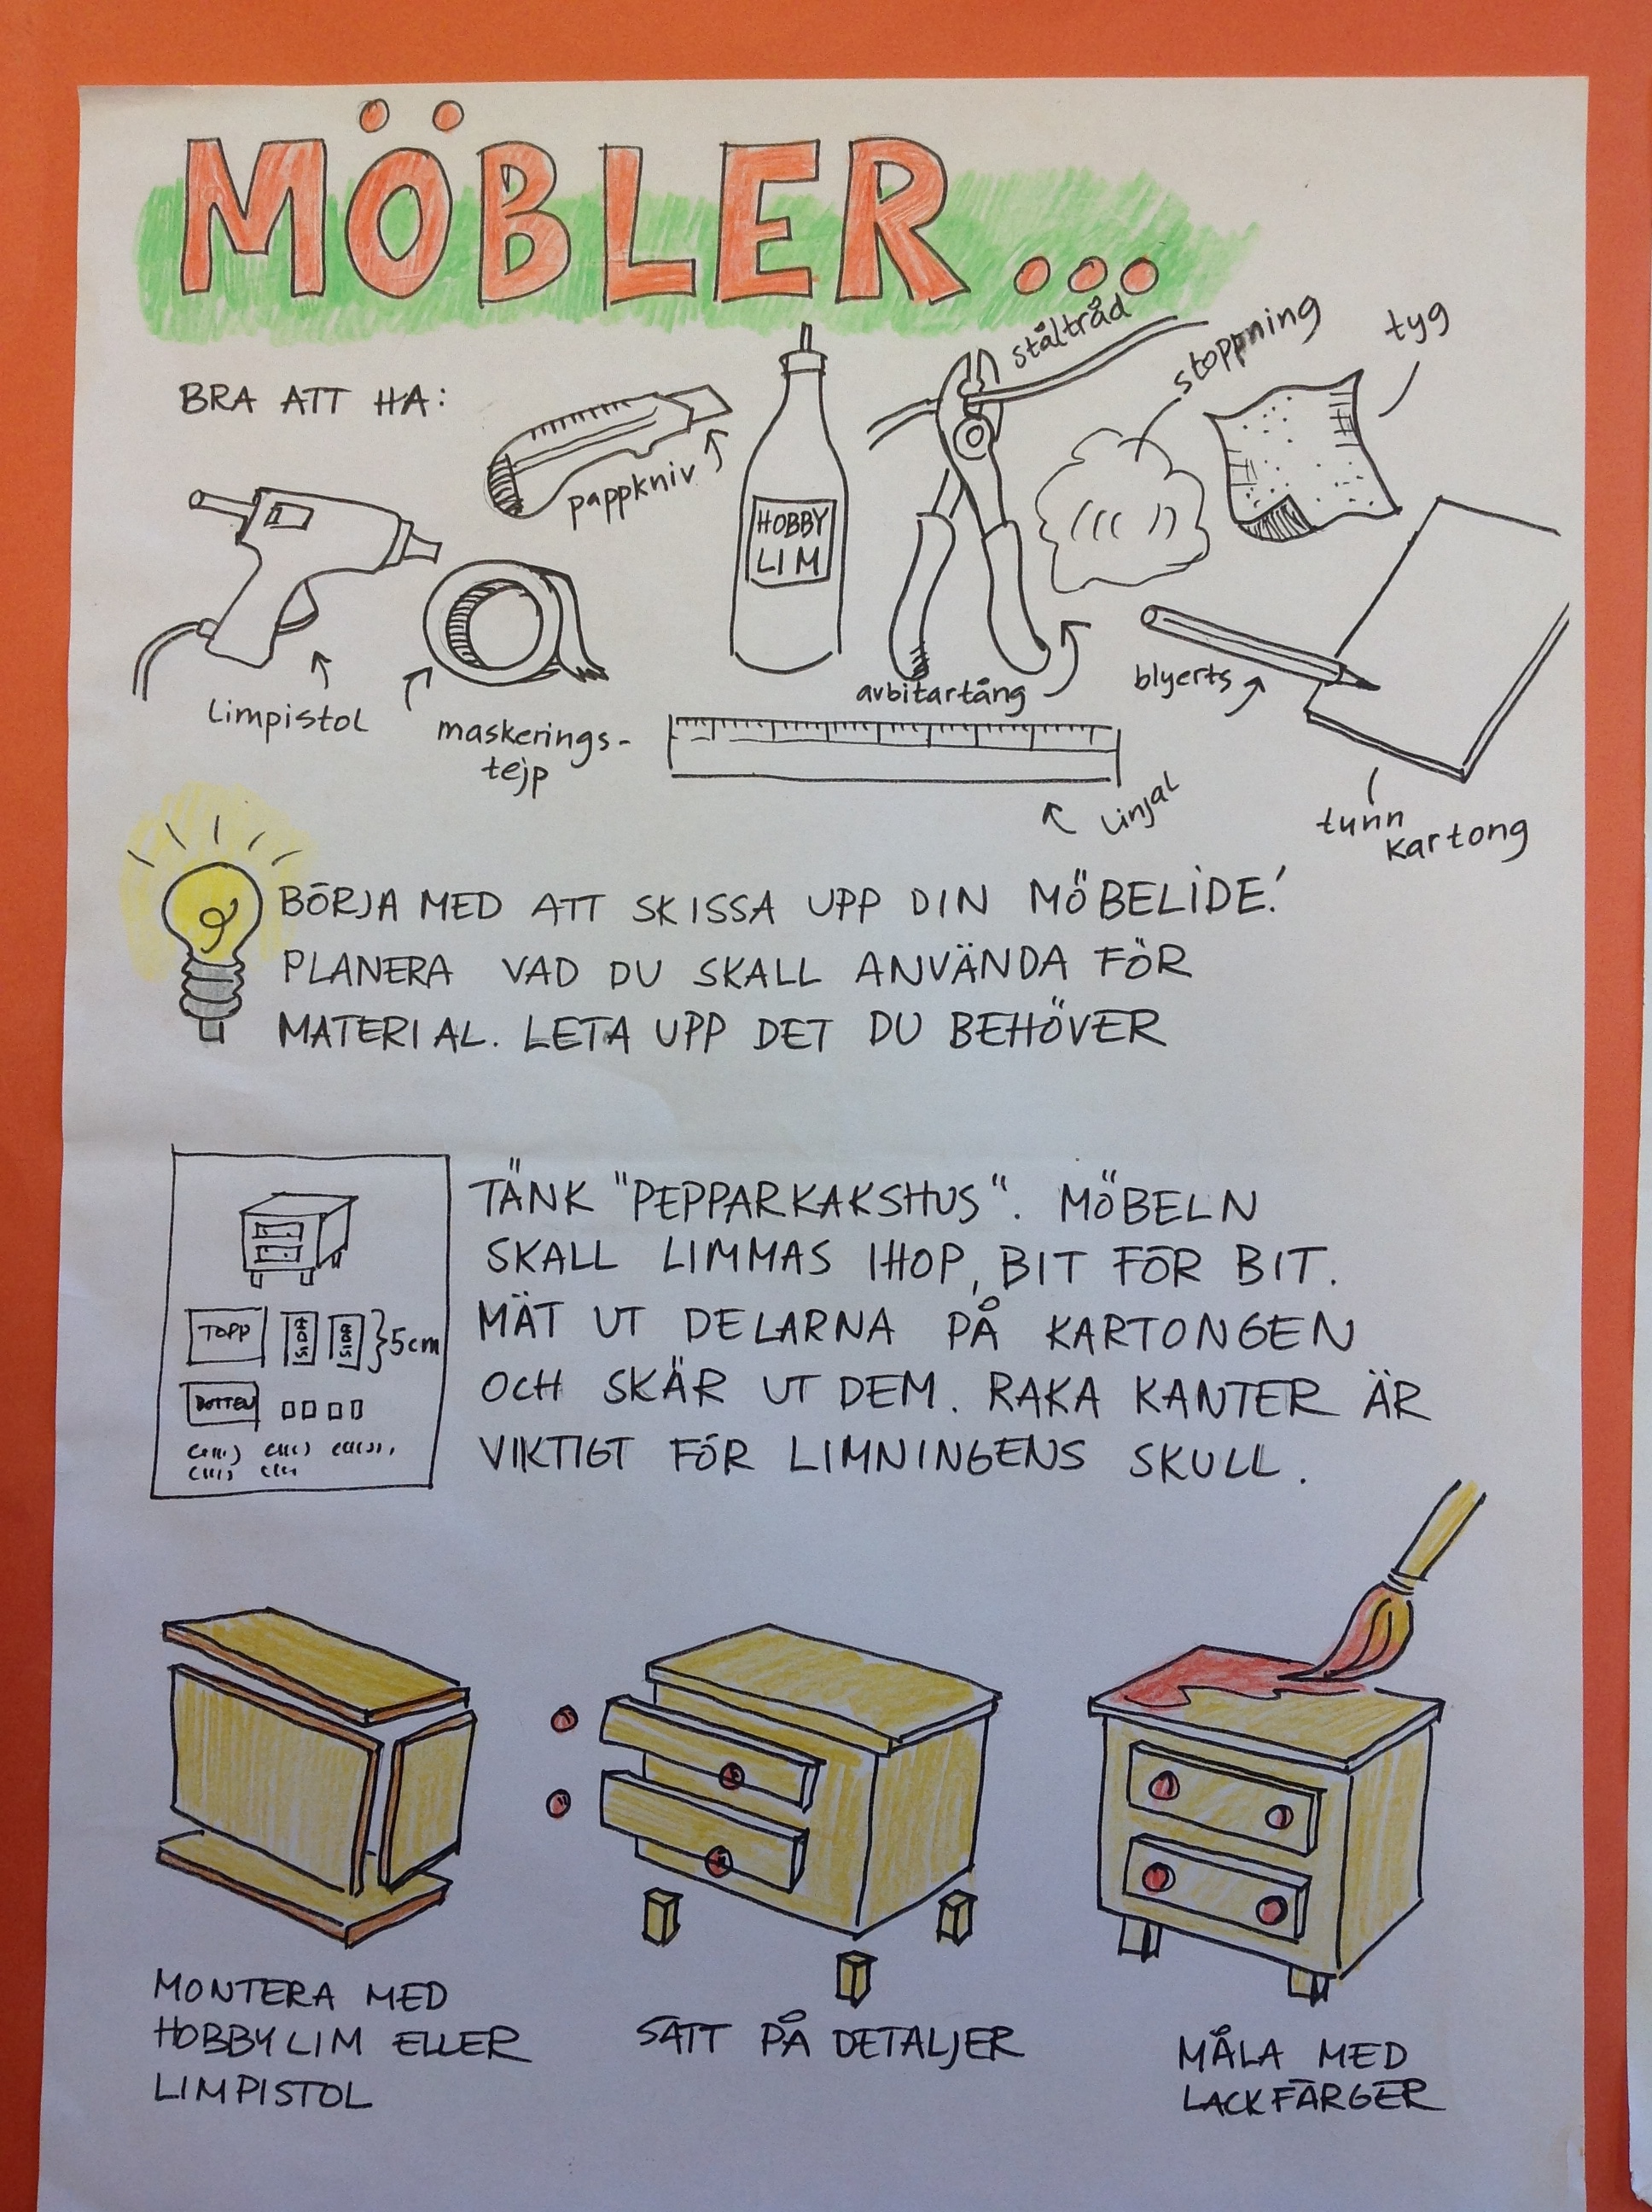 MÖBLER...
BRA ATT HA:
ståltråd
stoppning
tyg
pappkniv
HOBBY
LIM
limpistol
maskerings-
tejp
avbitartång
blyerts
linjal
tunn
kartong
BÖRJA MED ATT SKISSA UPP DIN MÖBELIDE!
PLANERA VAD DU SKALL ANVÄNDA FÖR
MATERIAL. LETA UPP DET DU BEHÖVER
TOPP
SIDA
SIDA
5cm
BOTTEN
TÄNK "PEPPARKAKSHUS". MÖBELN
SKALL LIMMAS IHOP, BIT FÖR BIT.
MÄT UT DELARNA PÅ KARTONGEN
OCH SKÄR UT DEM. RAKA KANTER ÄR
VIKTIGT FÖR LIMNINGENS SKULL.
MONTERA MED
HOBBYLIM ELLER
LIMPISTOL
SÄTT PÅ DETALJER
MÅLA MED
LACKFÄRGER